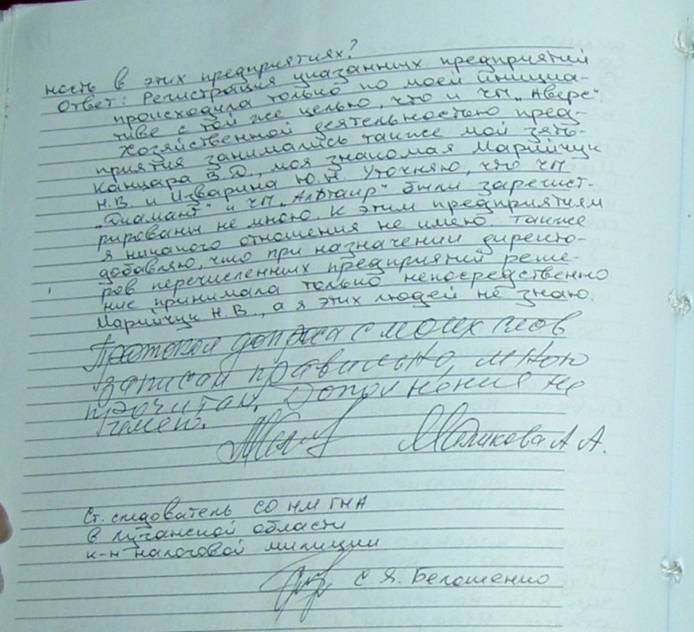 ность в этих предприятиях?
Ответ: Регистрация указанных предприятий
происходила только по моей инициа-
тиве с той же целью, что и ЧП „Аверс“
Хозяйственной деятельностью пред-
приятия занимались также мой зять-
Канцара В.Д., моя знакомая Марийчук
Н.В. и Изварина Ю.Н. Уточняю, что ЧП
„Диамант“ и ЧП „Альтаир“ были зарегист-
рированы не мною. К этим предприятиям
я никакого отношения не имею. Также
добавляю, что при назначении директо-
ров перечисленных предприятий реше-
ние принимала только непосредственно
Марийчук Н.В., а я этих людей не знаю.
Протокол допроса с моих слов
записан правильно мною
прочитан. Дополнения не
имею.
Маликова А.А.
Ст. следователь СО НМ ГНА
в Луганской области
к-н налоговой милиции
С.Я. Белошенко